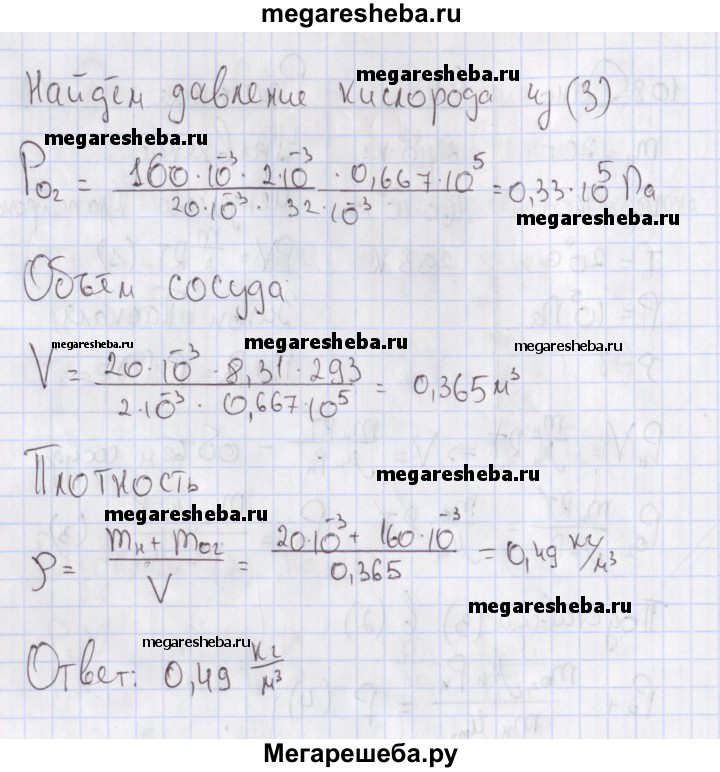 megaresheba.ru
Найдём давление кислорода из (3)
megaresheba.ru
megaresheba.ru
P_{O2} = \frac{160·10^{-3}·2·10^{-3}·0,667·10^5}{20·10^{-3}·32·10^{-3}} = 0,33·10^5 Па
megaresheba.ru
Объём сосуда
megaresheba.ru
megaresheba.ru
megaresheba.ru
V = \frac{20·10^{-3}·8,31·293}{2·10^{-3}·0,667·10^5} = 0,365 м^3
Плотность
megaresheba.ru
megaresheba.ru
ρ = \frac{m_н + m_{O2}}{V} = \frac{20·10^{-3} + 160·10^{-3}}{0,365} = 0,49 кг/м^3
megaresheba.ru
megaresheba.ru
Ответ: 0,49 \frac{кг}{м^3}
Мегарешеба.ру